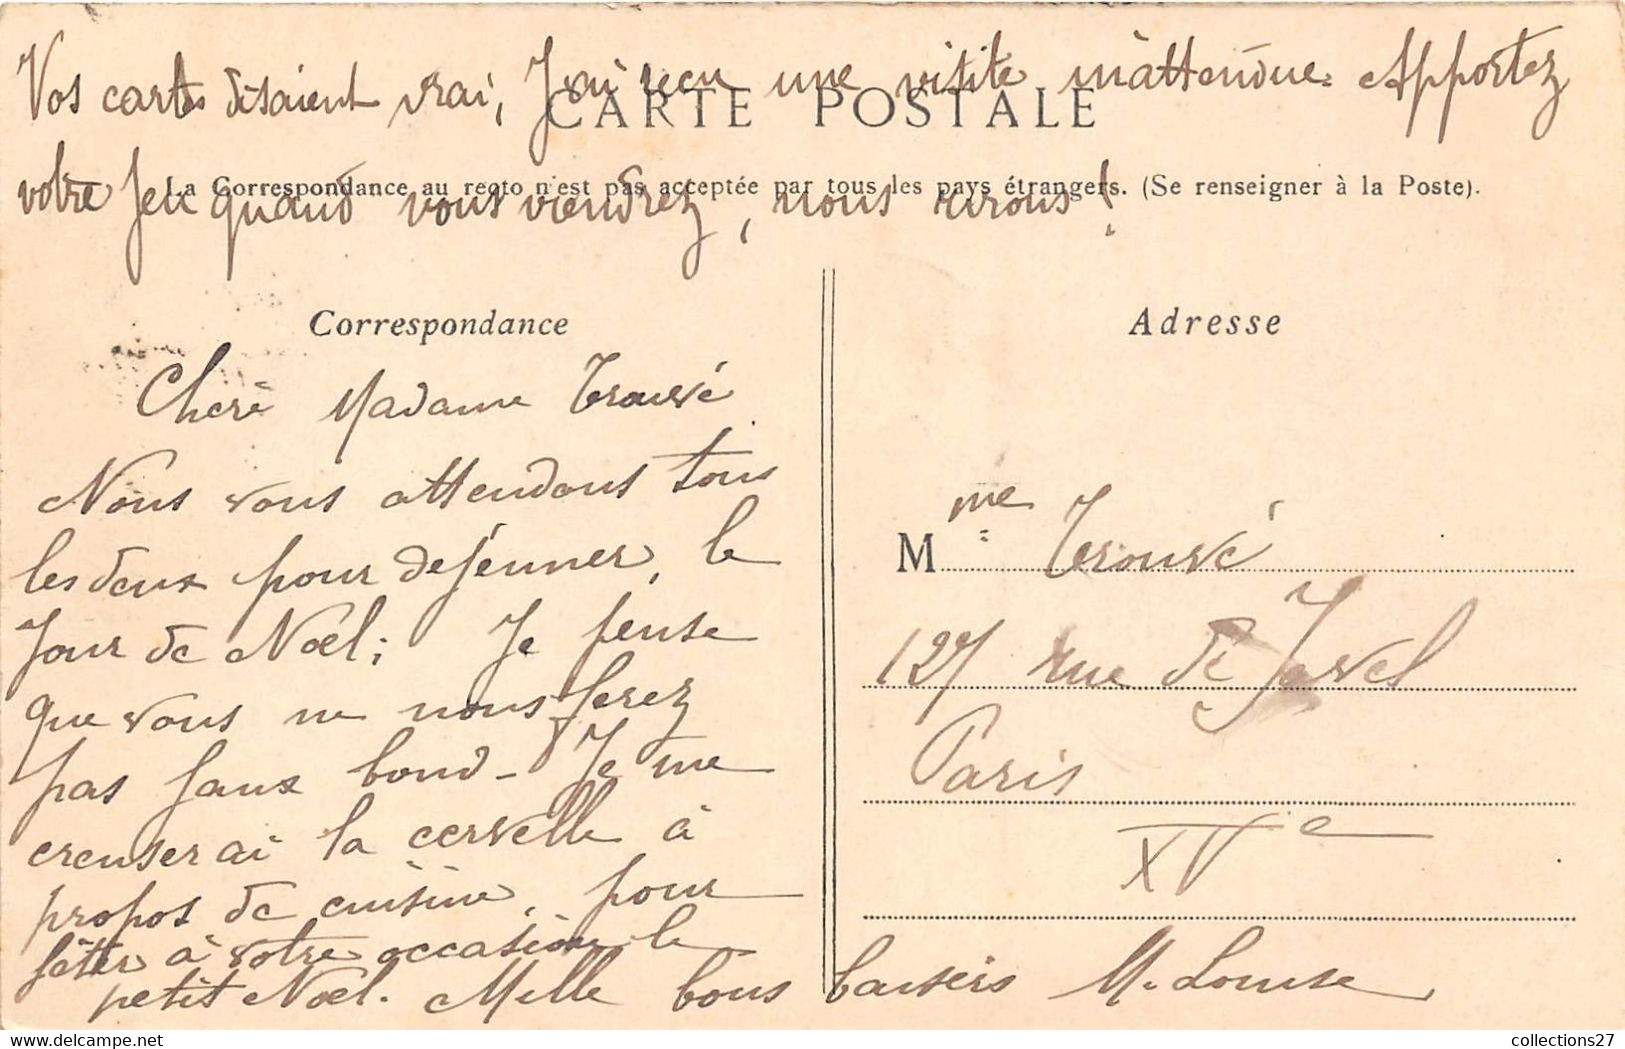 Vos cartes disaient vrai, J'ai reçu une visite inattendue. Apportez
CARTE POSTALE
votre Jeu quand vous viendrez, nous rirons!
La Correspondance au recto n'est pas acceptée par tous les pays étrangers. (Se renseigner à la Poste).
Correspondance
Chère Madame Trouvé
Nous vous attendons tous
les deux pour dejeuner, le
Jour de Noël; Je pense
que vous ne nous ferez
pas faux bond - Je me
creuserai la cervelle à
propos de cuisine, pour
fêter à votre occasion le
petit Noël. Mille bons baisers M. Louise
Adresse
Mme Trouvé
127 rue de Javel
Paris
XVe
collections27